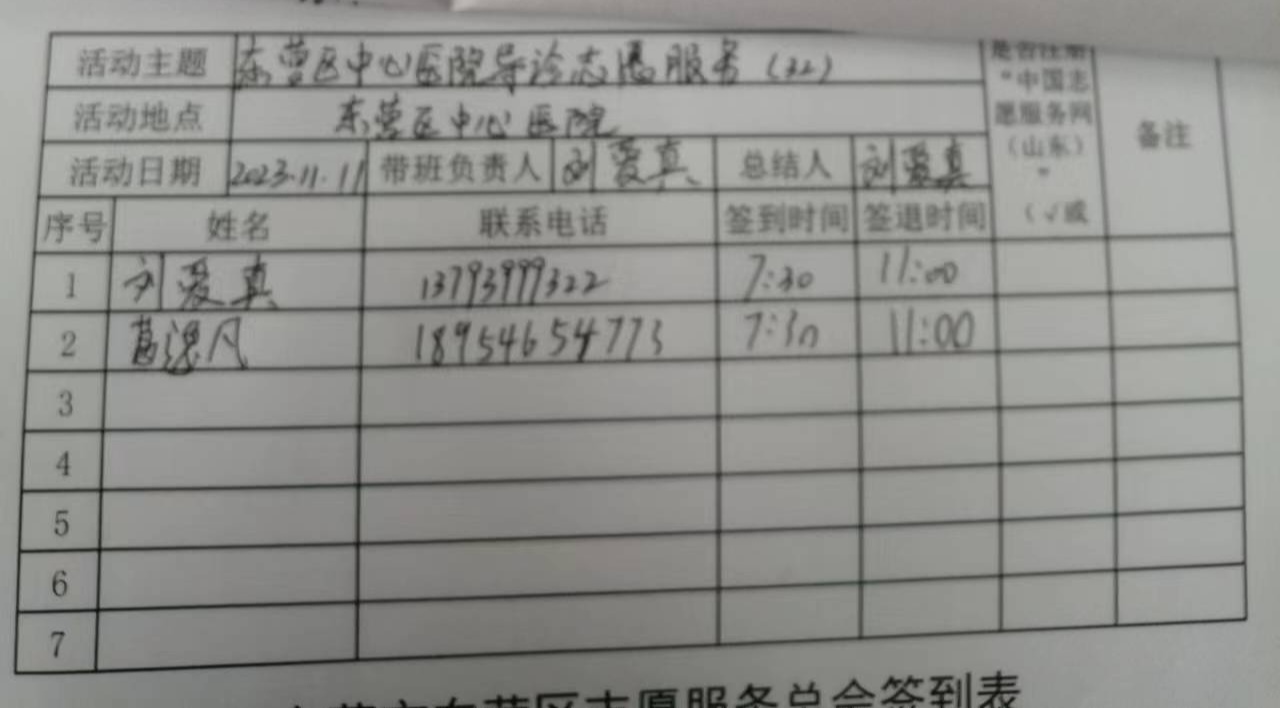 活动主题 东营区中心医院导诊志愿服务（32）
活动地点 东营区中心医院
活动日期 2023.11.11 带班负责人 刘爱真 总结人 刘爱真
是否注册“中国志愿服务网（山东）”（√或
备注
序号 姓名 联系电话 签到时间 签退时间
1 刘爱真 13793999322 7:30 11:00
2 葛逸凡 18954654773 7:30 11:00
3
4
5
6
7
东营区志愿服务总会签到表